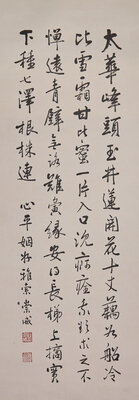 太華峰頭玉井蓮開花十丈藕如船冷
比雪霜甘比蜜一片入口沈痾痊我欲求之不
憚遠青壁無路難夤緣安得長梯上摘實
下種七澤根株連 心平姻好雅索